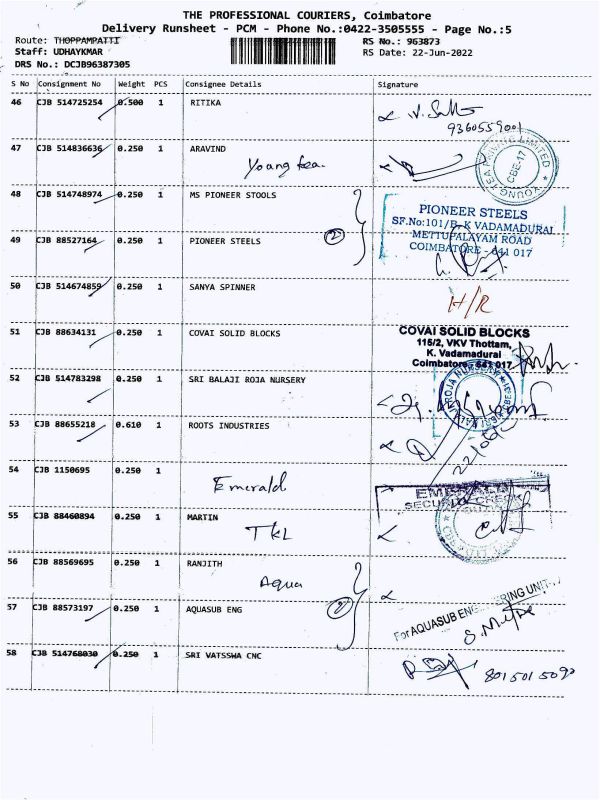 THE PROFESSIONAL COURIERS, Coimbatore
Delivery Runsheet - PCM - Phone No.:0422-3505555 - Page No.:5
Route: THOPPAMPATTI RS No.: 963873
Staff: UDHAYKMAR RS Date: 22-Jun-2022
DRS No.: DCJB96387305
S No Consignment No Weight PCS Consignee Details Signature
46 CJB 514725254 0.500 1 RITIKA
9360559001
47 CJB 514836636 0.250 1 ARAVIND
Young tea.
YOUNG TEA PRIVATE LIMITED
CBE-17
48 CJB 514748974 0.250 1 MS PIONEER STOOLS
PIONEER STEELS
SF.No:101/B, K VADAMADURAI
METTUPALAYAM ROAD
COIMBATORE - 641 017
49 CJB 88527164 0.250 1 PIONEER STEELS
2
50 CJB 514674859 0.250 1 SANYA SPINNER
H/R
51 CJB 88634131 0.250 1 COVAI SOLID BLOCKS
COVAI SOLID BLOCKS
115/2, VKV Thottam,
K. Vadamadurai
Coimbatore - 641 017
52 CJB 514783298 0.250 1 SRI BALAJI ROJA NURSERY
53 CJB 88655218 0.610 1 ROOTS INDUSTRIES
54 CJB 1150695 0.250 1
Emerald
EMERALD
SECURITY CHECK
55 CJB 88460894 0.250 1 MARTIN
TKL
56 CJB 88569695 0.250 1 RANJITH
Aqua
57 CJB 88573197 0.250 1 AQUASUB ENG
2
For AQUASUB ENGINEERING UNIT
58 CJB 514768030 0.250 1 SRI VATSSWA CNC